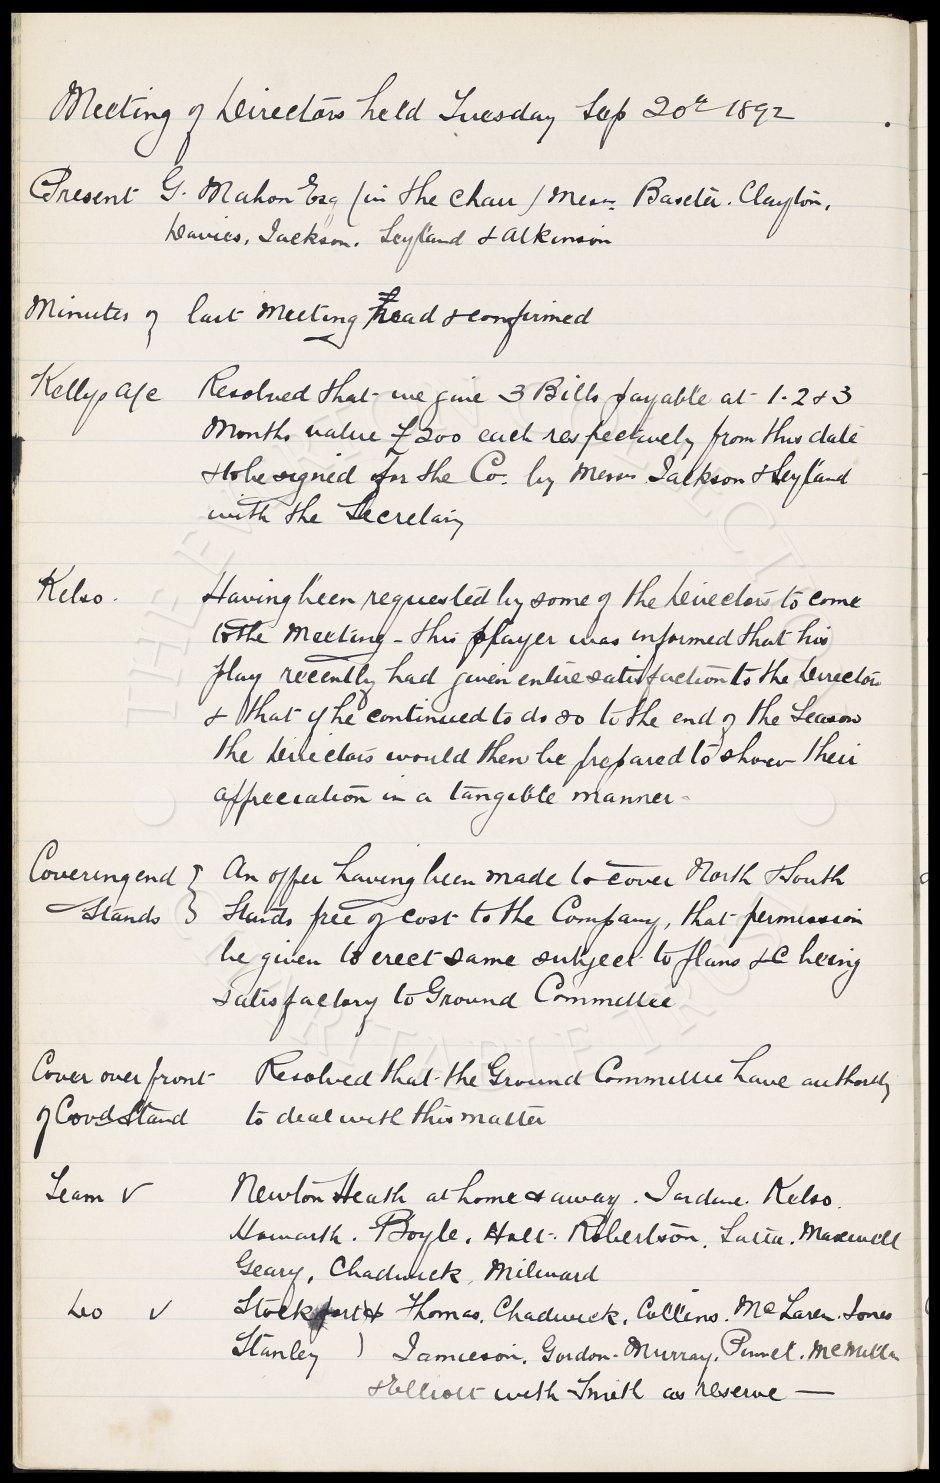 Meeting of Directors held Tuesday Sep 20th 1892
Present G. Mahon Esq (in the chair) Messrs Baxter. Clayton.
Davies, Jackson. Leyland & Atkinson
Minutes of last Meeting read & confirmed
Kellys a/c Resolved that we give 3 Bills payable at 1. 2 & 3
Months value £200 each respectively from this date
& to be signed for the Co. by Messrs Jackson & Leyland
with the Secretary
Kelso. Having been requested by some of the Directors to come
to the Meeting - this player was informed that his
play recently had given entire satisfaction to the Directors
& that if he continued to do so to the end of the Season
the Directors would then be prepared to show their
appreciation in a tangible manner -
Covering end } An offer having been made to cover North & South
Stands } Stands free of cost to the Company, that permission
be given to erect same subject to plans &c being
satisfactory to Ground Committee
Cover over front Resolved that the Ground Committee have authority
of Cov'd Stand to deal with this matter
Team v Newton Heath at home & away. Jardine. Kelso.
Howarth. Boyle. Holt. Robertson. Latta. Maxwell
Geary, Chadwick, Milward
Do v Stockport & Thomas. Chadwick. Collins. McLaren. Jones
Stanley ) Jamieson. Gordon. Murray. Pinnel. McMillan
& Elliott with Smith as reserve —
THE EVERTON COLLECTION
CHARITABLE TRUST